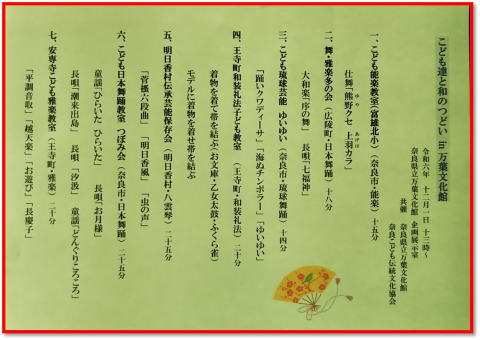 こども達と和のつどい in 万葉文化館
令和六年 十二月一日 十三時～
奈良県立万葉文化館 企画展示室
共催 奈良県立万葉文化館
奈良こども伝統文化協会
一、こども能楽教室(富雄北小)(奈良市・能楽) 十五分
仕舞「熊野クセ 上羽カラ」
ゆや あげは
二、舞 雅楽多の会(広陵町・日本舞踊) 十八分
大和楽「序の舞」 長唄「七福神」
三、こども琉球芸能 ゆいゆい(奈良市・琉球舞踊) 十四分
「踊いクワディーサ」「海ぬチンボラー」「ゆいゆい」
四、王寺町和装礼法子ども教室 (王寺町・和装礼法) 二十分
着物を着て帯を結ぶ(お文庫・乙女太鼓・ふくら雀)
モデルに着物を着せ帯を結ぶ
五、明日香村伝承芸能保存会(明日香村・八雲琴) 二十五分
「菅搔・六段曲」 「明日香風」 「虫の声」
六、こども日本舞踊教室 つぼみ会(奈良市・日本舞踊) 二十五分
童謡「ひらいた ひらいた」 長唄「お月様」
長唄「潮来出島」 長唄「汐汲」 童謡「どんぐりころころ」
七、安専寺こども雅楽教室(王寺町・雅楽) 二十分
「平調音取」「越天楽」「お遊び」「長慶子」